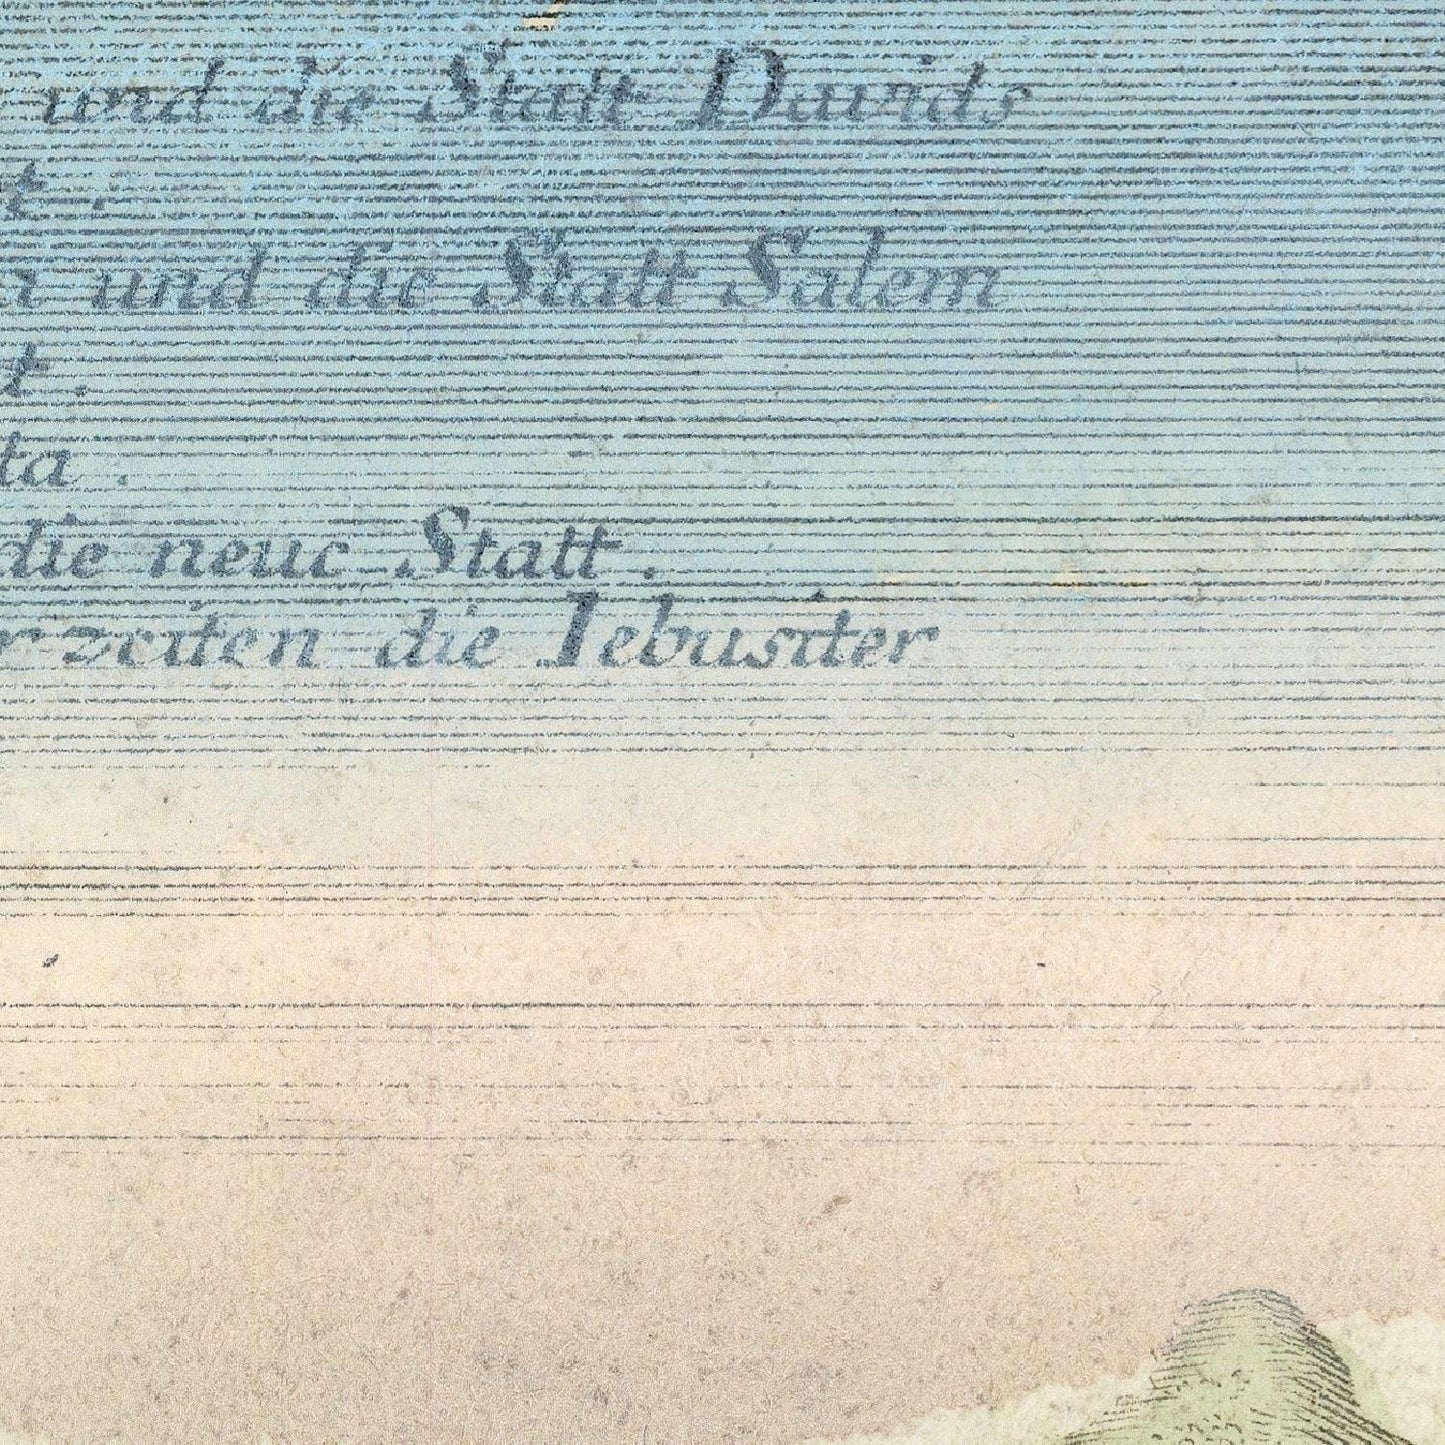 und die Statt Davids
t.
a und die Statt Salem
t.
ta.
die neue Statt.
rzeiten die Iebusiter